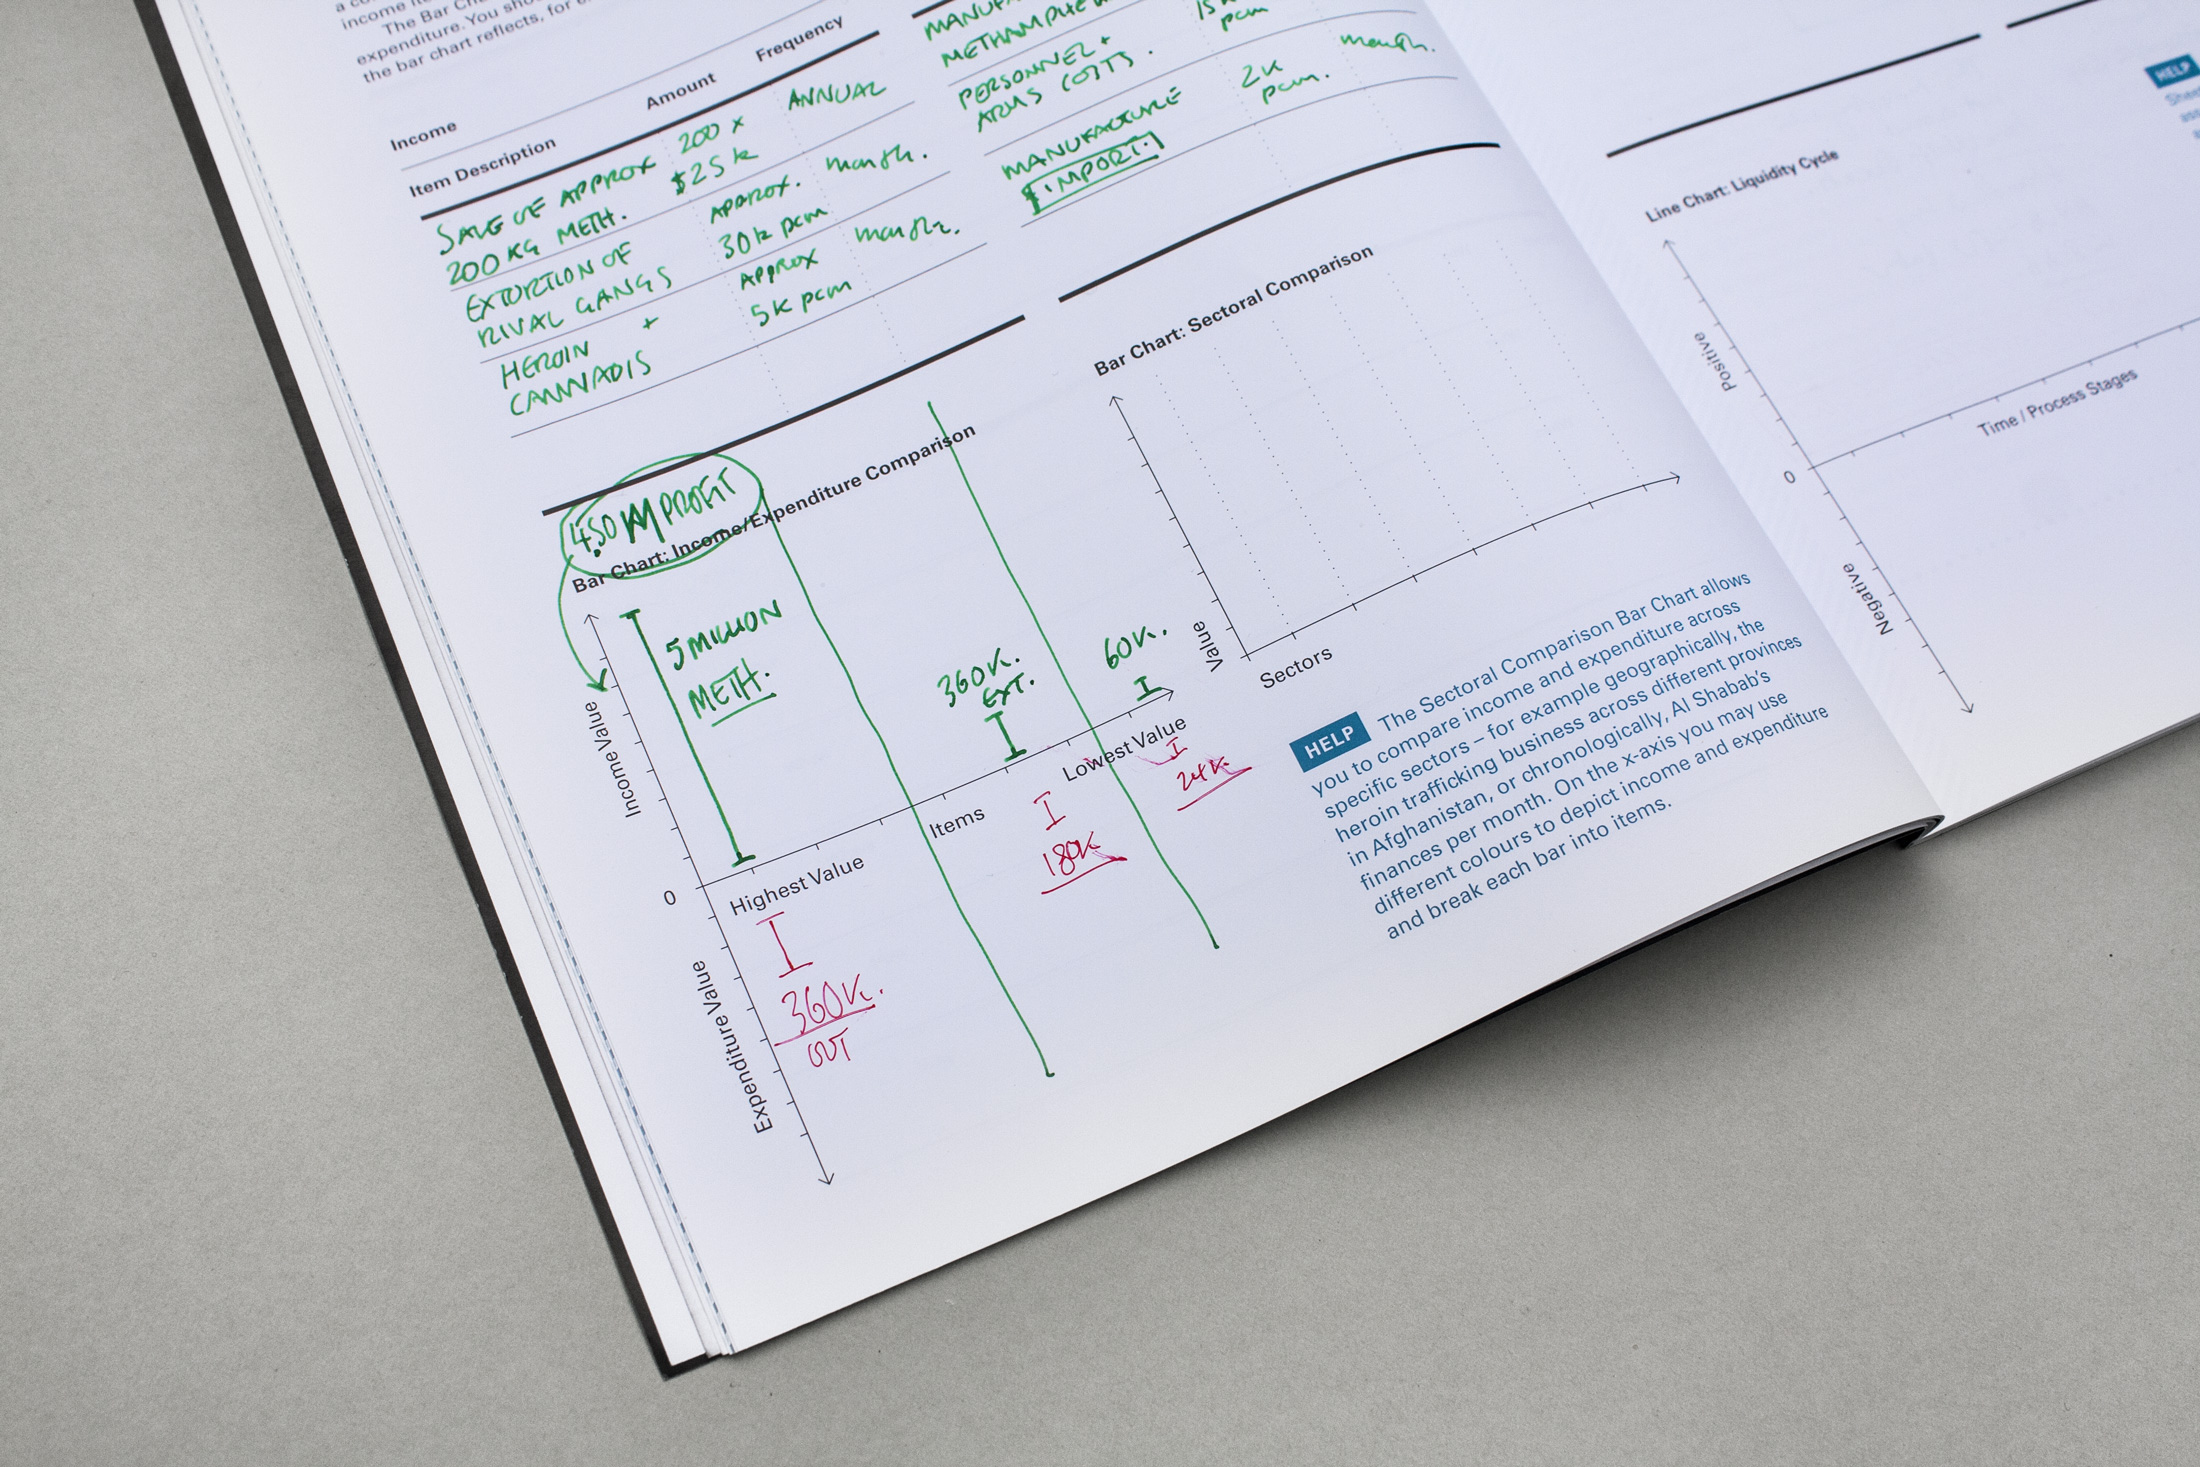 income
The Bar
expenditure. You
the bar chart reflects, for
Income
Item Description
Amount
Frequency
SALE OF APPROX
200 KG METH.
200 x
$25k
ANNUAL
EXTORTION OF
RIVAL GANGS
APPROX.
30k pcm
month.
HEROIN +
CANNABIS
APPROX
5K pcm
month.
PERSONNEL +
ARMS COSTS.
pcm
month.
MANUFACTURE
IMPORT.
2K
pcm.
Bar Chart: Income/Expenditure Comparison
4.50 M PROFIT
5 MILLION
METH.
360K.
EXT.
60K.
Income Value
0
Highest Value
Items
Lowest Value
Expenditure Value
360K.
OUT
180K
24K.
Bar Chart: Sectoral Comparison
Value
Sectors
HELP The Sectoral Comparison Bar Chart allows
you to compare income and expenditure across
specific sectors – for example geographically, the
heroin trafficking business across different provinces
in Afghanistan, or chronologically, Al Shabab's
finances per month. On the x-axis you may use
different colours to depict income and expenditure
and break each bar into items.
Line Chart: Liquidity Cycle
Positive
0
Time / Process Stages
Negative
HELP